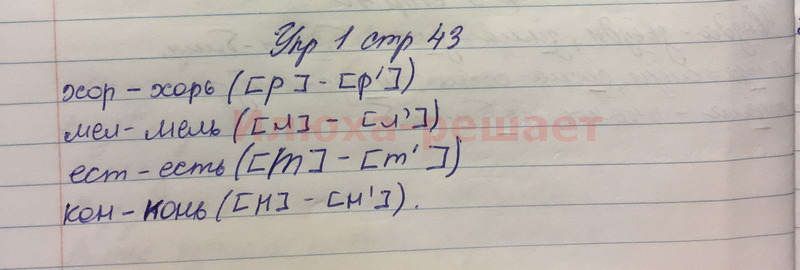 Упр 1 стр 43
хор – хорь ([р] - [р'])
мел - мель ([л] - [л'])
ест - есть ([т] - [т'])
кон - конь ([н] - [н']).
Илюха-решает